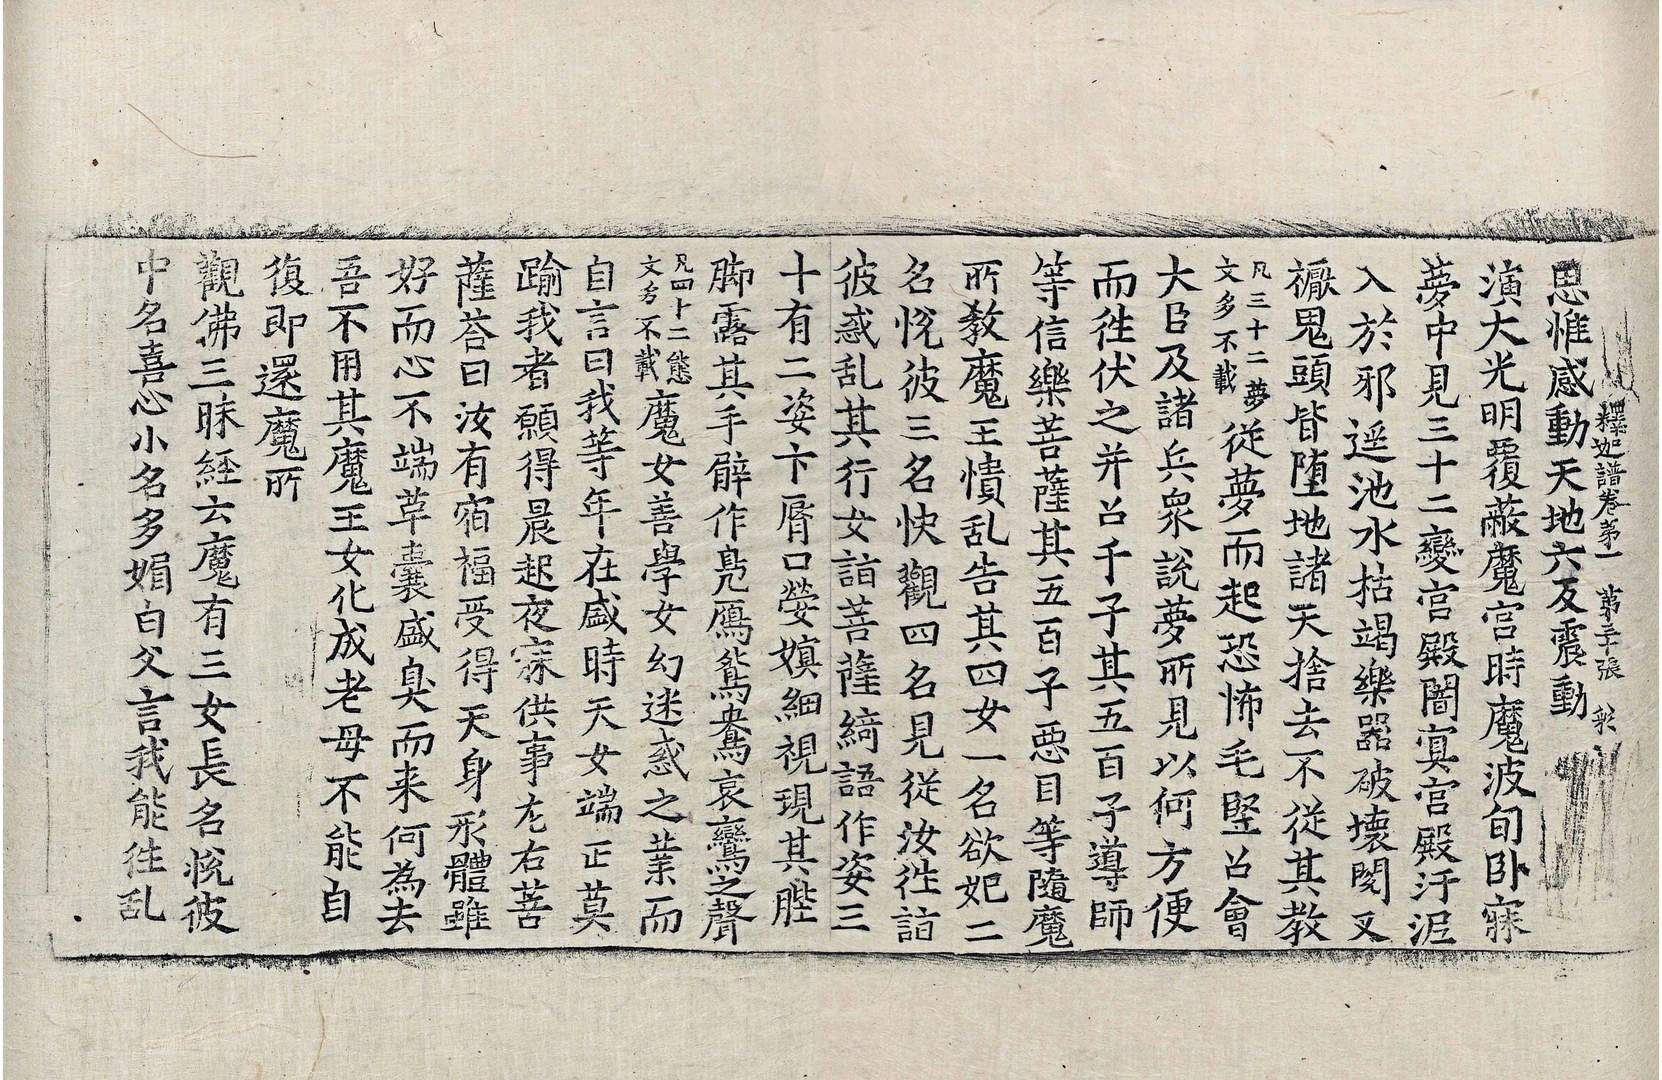 思惟感動天地六反震動
釋迦譜卷第一　第三十張
演大光明覆蔽魔宮時魔波旬卧寐
夢中見三十二變宮殿闇冥宮殿汙泥
入於邪逕池水枯竭樂器破壞閱叉
厭鬼頭皆墮地諸天捨去不從其教
凡三十二夢文多不載從夢而起恐怖毛竪召會
大臣及諸兵衆說夢所見以何方便
而徃伏之并召千子其五百子導師
等信樂菩薩其五百子惡目等隨魔
所教魔王憒乱告其四女一名欲妃二
名恱彼三名快觀四名見從汝徃詣
彼惑乱其行女詣菩薩綺語作姿三
十有二姿卞脣口嫈嫇細視現其䏶
脚露其手臂作鳧鴈鴛鴦哀鸞之聲
凡四十二態文多不載魔女善學女幻迷惑之業而
自言曰我等年在盛時天女端正莫
踰我者願得晨起夜寐供事左右菩
薩荅曰汝有宿福受得天身形體雖
好而心不端草囊盛臭而来何為去
吾不用其魔王女化成老母不能自
復即還魔所
觀佛三昧經云魔有三女長名恱彼
中名喜心小名多媚白父言我能徃乱